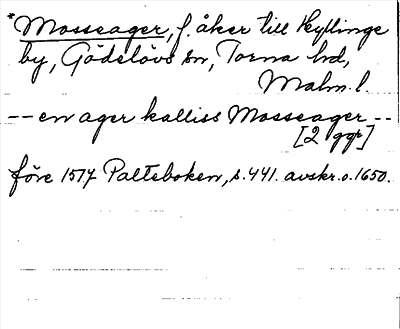 *Mosseager, f. åker till Kyllinge
by, Gödelövs sn, Torna hd,
Malm. l.
-- en ager kalliss Mosseager --
[2 ggr]
före 1517 Palteboken, s. 441. avskr. o. 1650.